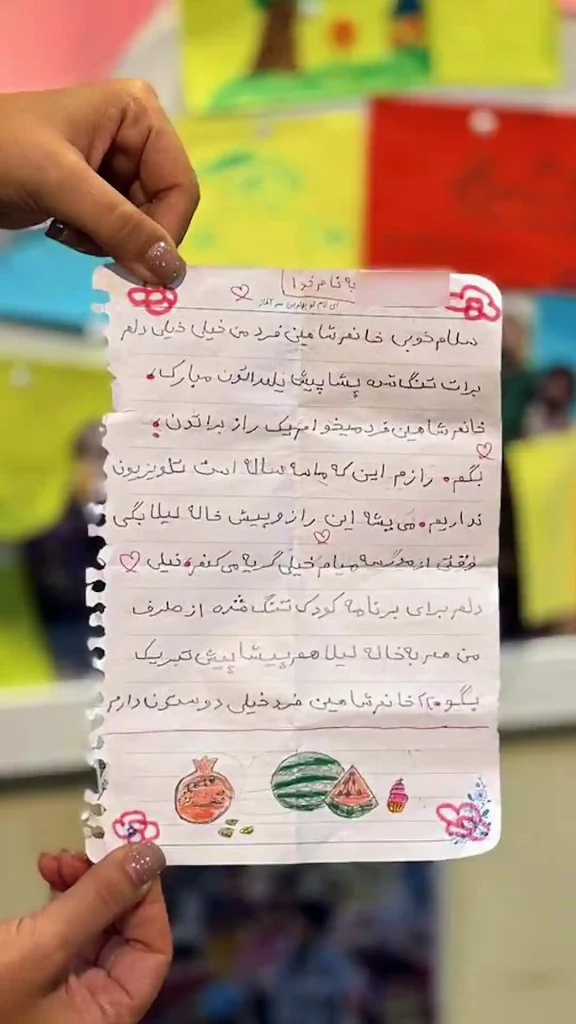 به نام خدا
ای نام تو بهترین سر آغاز
سلام خوبی خانم شاهین فرد من خیلی خیلی دلم
برات تنگ شده پیشاپیش یلداتون مبارک
خانم شاهین فرد میخوام یک راز براتون
بگم. رازم این که ما سه ساله است تلویزیون
نداریم. می‌شه این راز و پیش خاله لیلا بگی
وقتی از مدرسه میام خیلی گریه می‌کنم، خیلی
دلم برای برنامه کودک تنگ شده از طرف
من هم به خاله لیلا هم پیشاپیش تبریک
بگو خانم شاهین فرد خیلی دوستون دارم